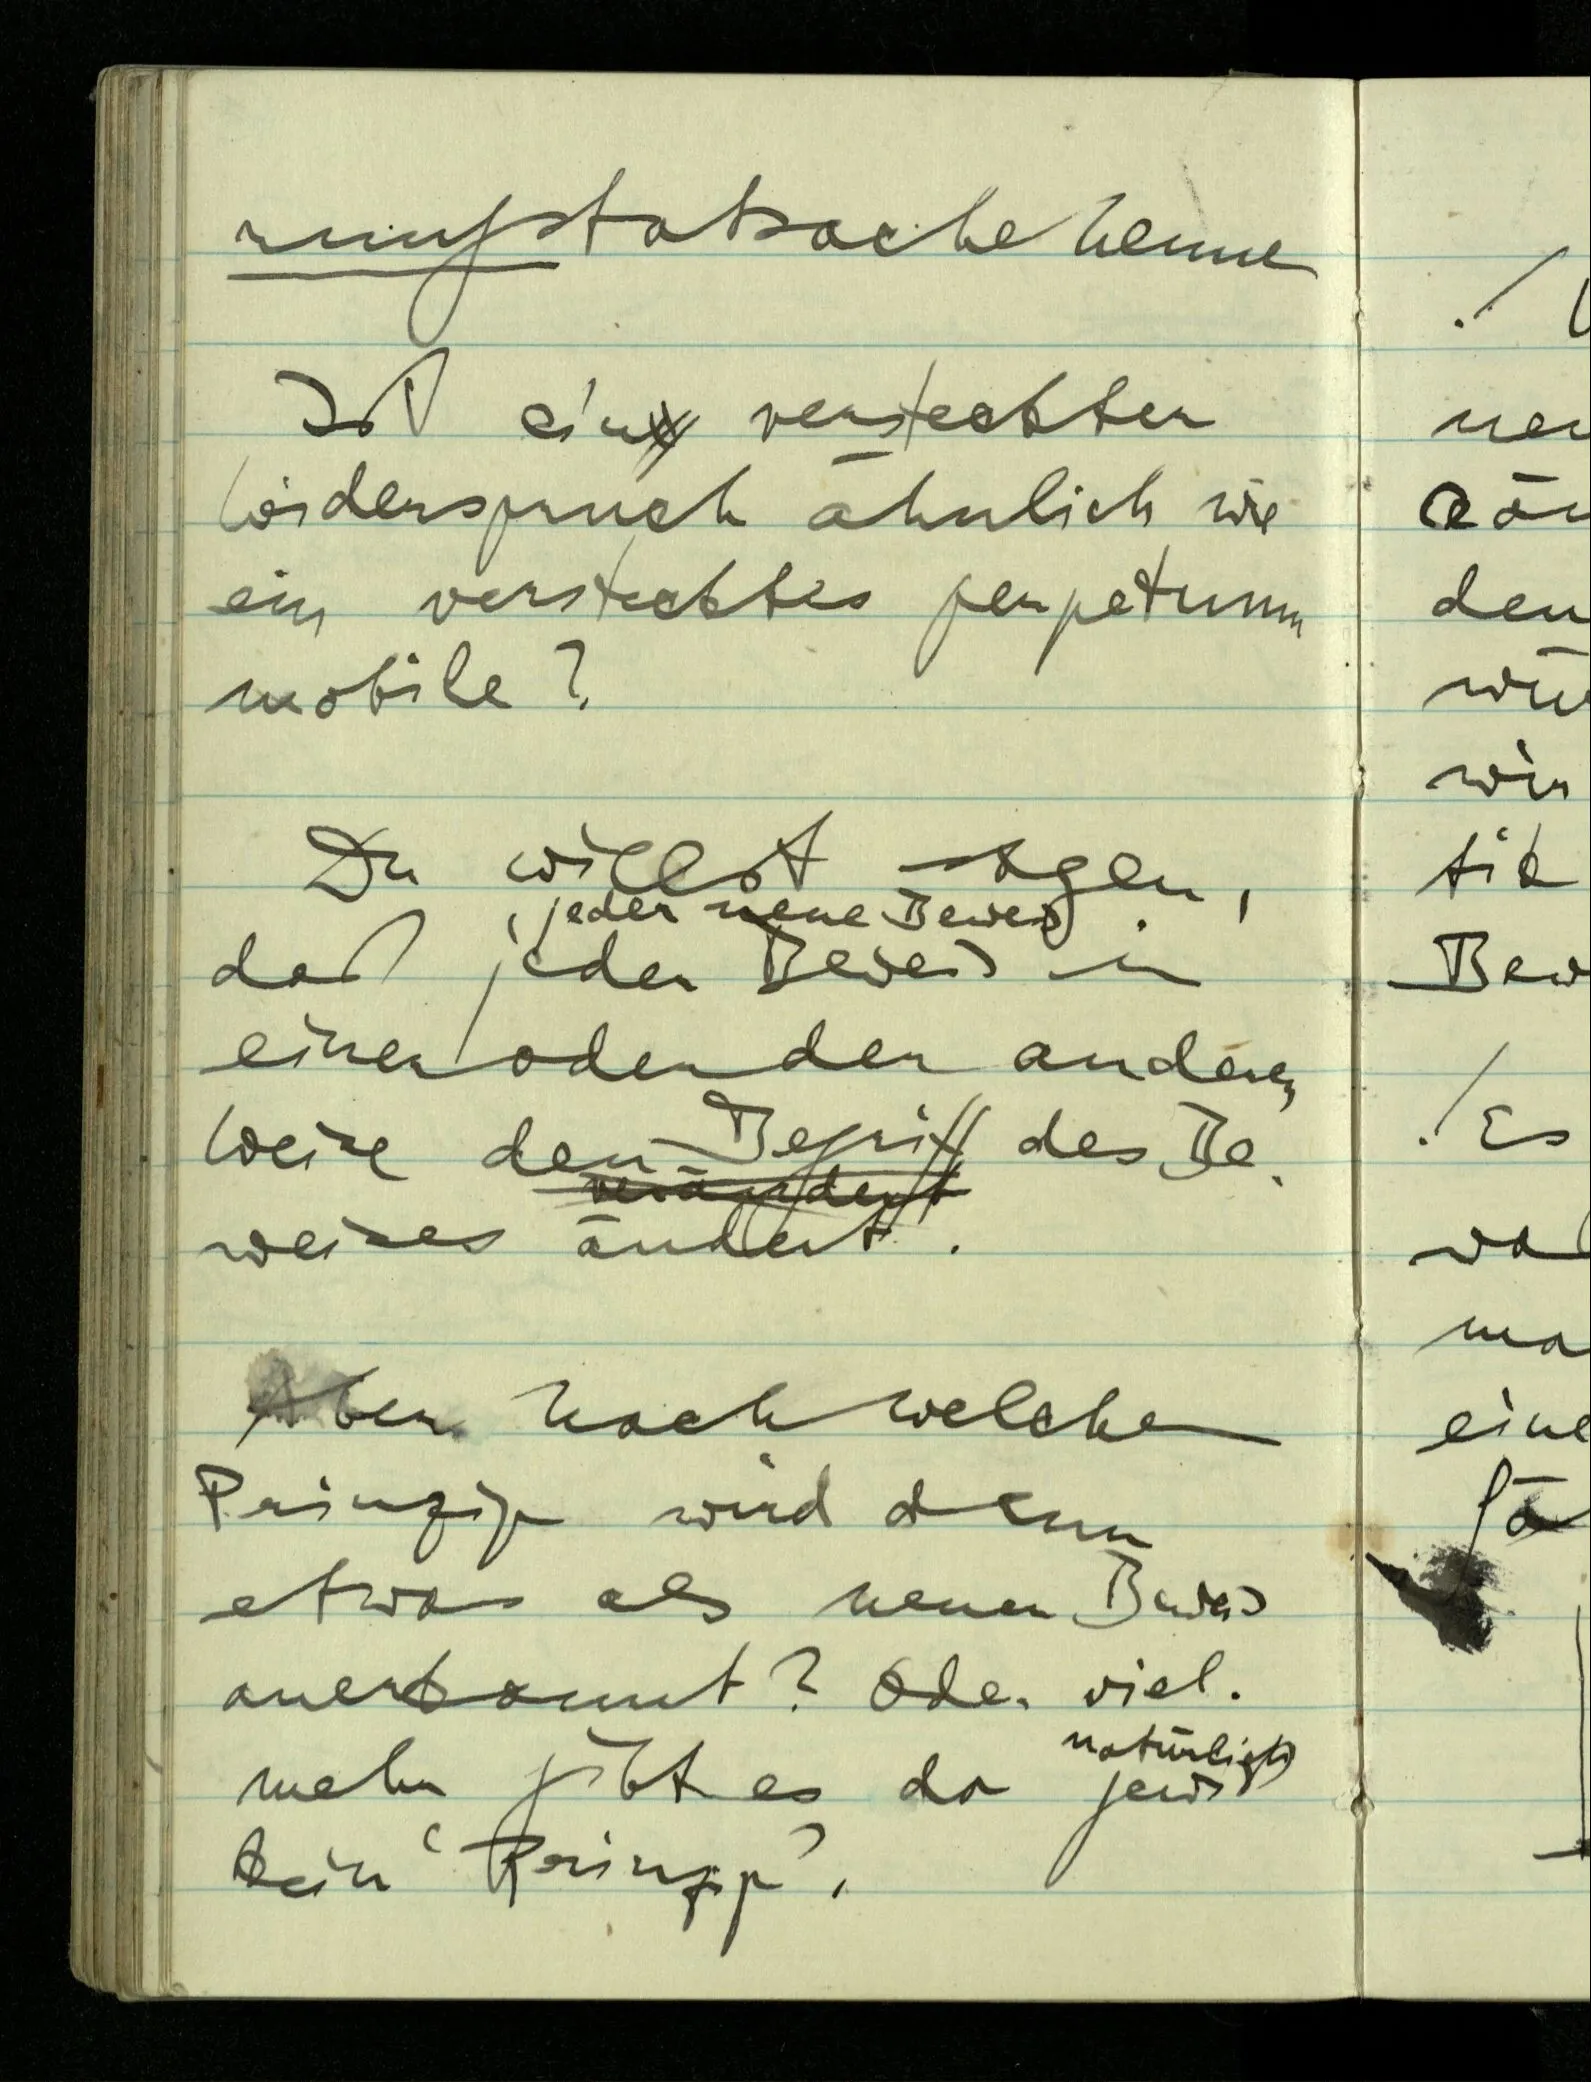 rungstatsache nenne
Ist ein versteckter
Widerspruch ähnlich wie
ein verstecktes perpetuum
mobile?
Du willst sagen,
, jeder neue Beweis
daß jeder Beweis in
einer oder der anderen
Weise den Begriff des Be-
verändert
weises ändert.
Aber nach welchem
Prinzip wird denn
etwas als neuer Beweis
anerkannt? Oder viel-
natürlich
mehr gibt es da gewiß
kein ‘Prinzip’.
./
neu
den
wir
tik
Bew
./ Es
ma
eine